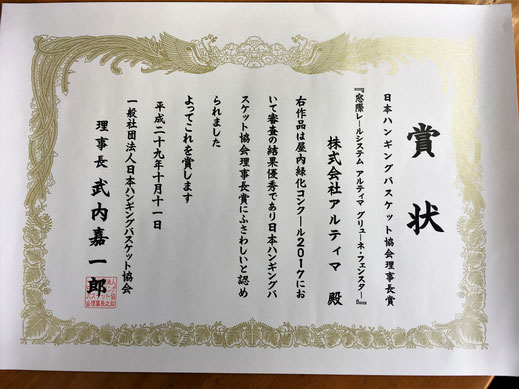 賞状
日本ハンギングバスケット協会理事長賞
『窓際レールシステム アルティマ グリューネ・フェンスター』
株式会社アルティマ 殿
右作品は屋内緑化コンクール2017にお
いて審査の結果優秀であり日本ハンギングバ
スケット協会理事長賞にふさわしいと認め
られました
よってこれを賞します
平成二十九年十月十一日
一般社団法人日本ハンギングバスケット協会
理事長 武内嘉一郎